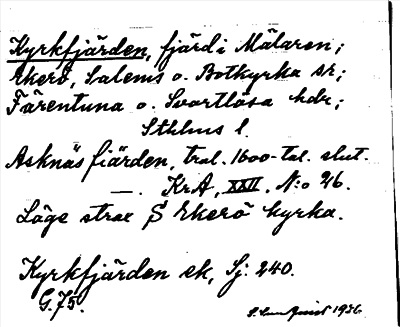 Kyrkfjärden, fjärd i Mälaren;
Ekerö, Salems o. Botkyrka sr;
Färentuna o. Svartlösa hdr;
Sthlms l.
Asknäs fiärden, trol. 1600-tal. slut.
—. KrA, XXII. N:o 26.
Läge strax S Ekerö kyrka.
Kyrkfjärden ek, Sj. 240.
G.75.
1936